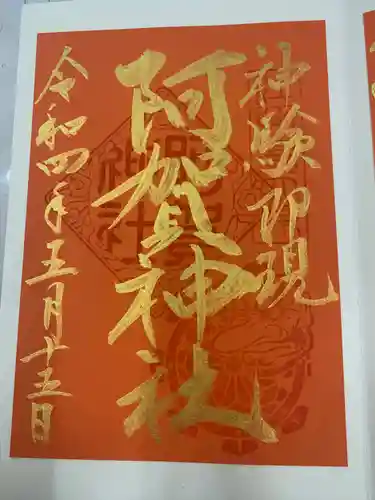 神験即現
阿賀神社
令和四年五月十五日